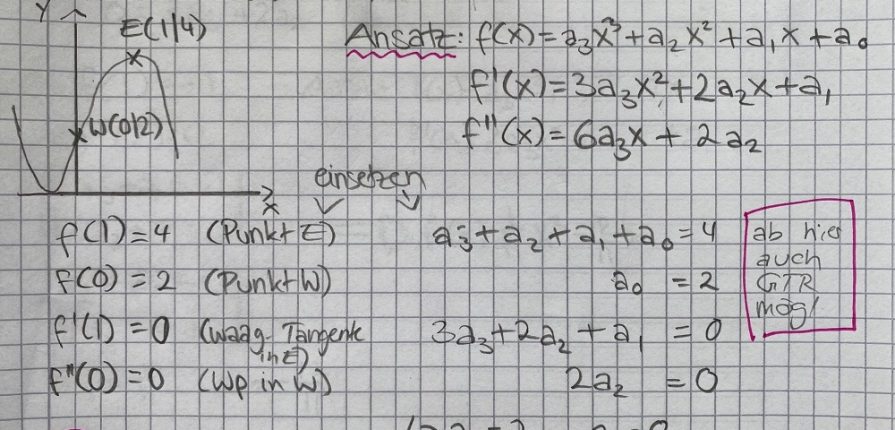 y
E(1|4)
W(0|2)
x
Ansatz: f(x)=a₃x³+a₂x²+a₁x+a₀
f'(x)=3a₃x²+2a₂x+a₁
f''(x)=6a₃x+2a₂
einsetzen
f(1)=4 (Punkt E) a₃+a₂+a₁+a₀=4
f(0)=2 (Punkt W) a₀=2
f'(1)=0 (waag. Tangente
in E) 3a₃+2a₂+a₁=0
f''(0)=0 (Wp in W) 2a₂=0
ab hier
auch
GTR
mögl